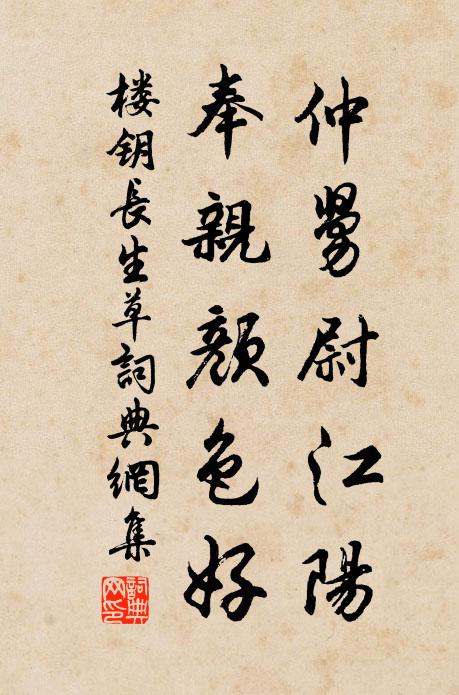 仲舅尉江陽
奉親顏色好
楼钥長生草詞典網集
詞典网印